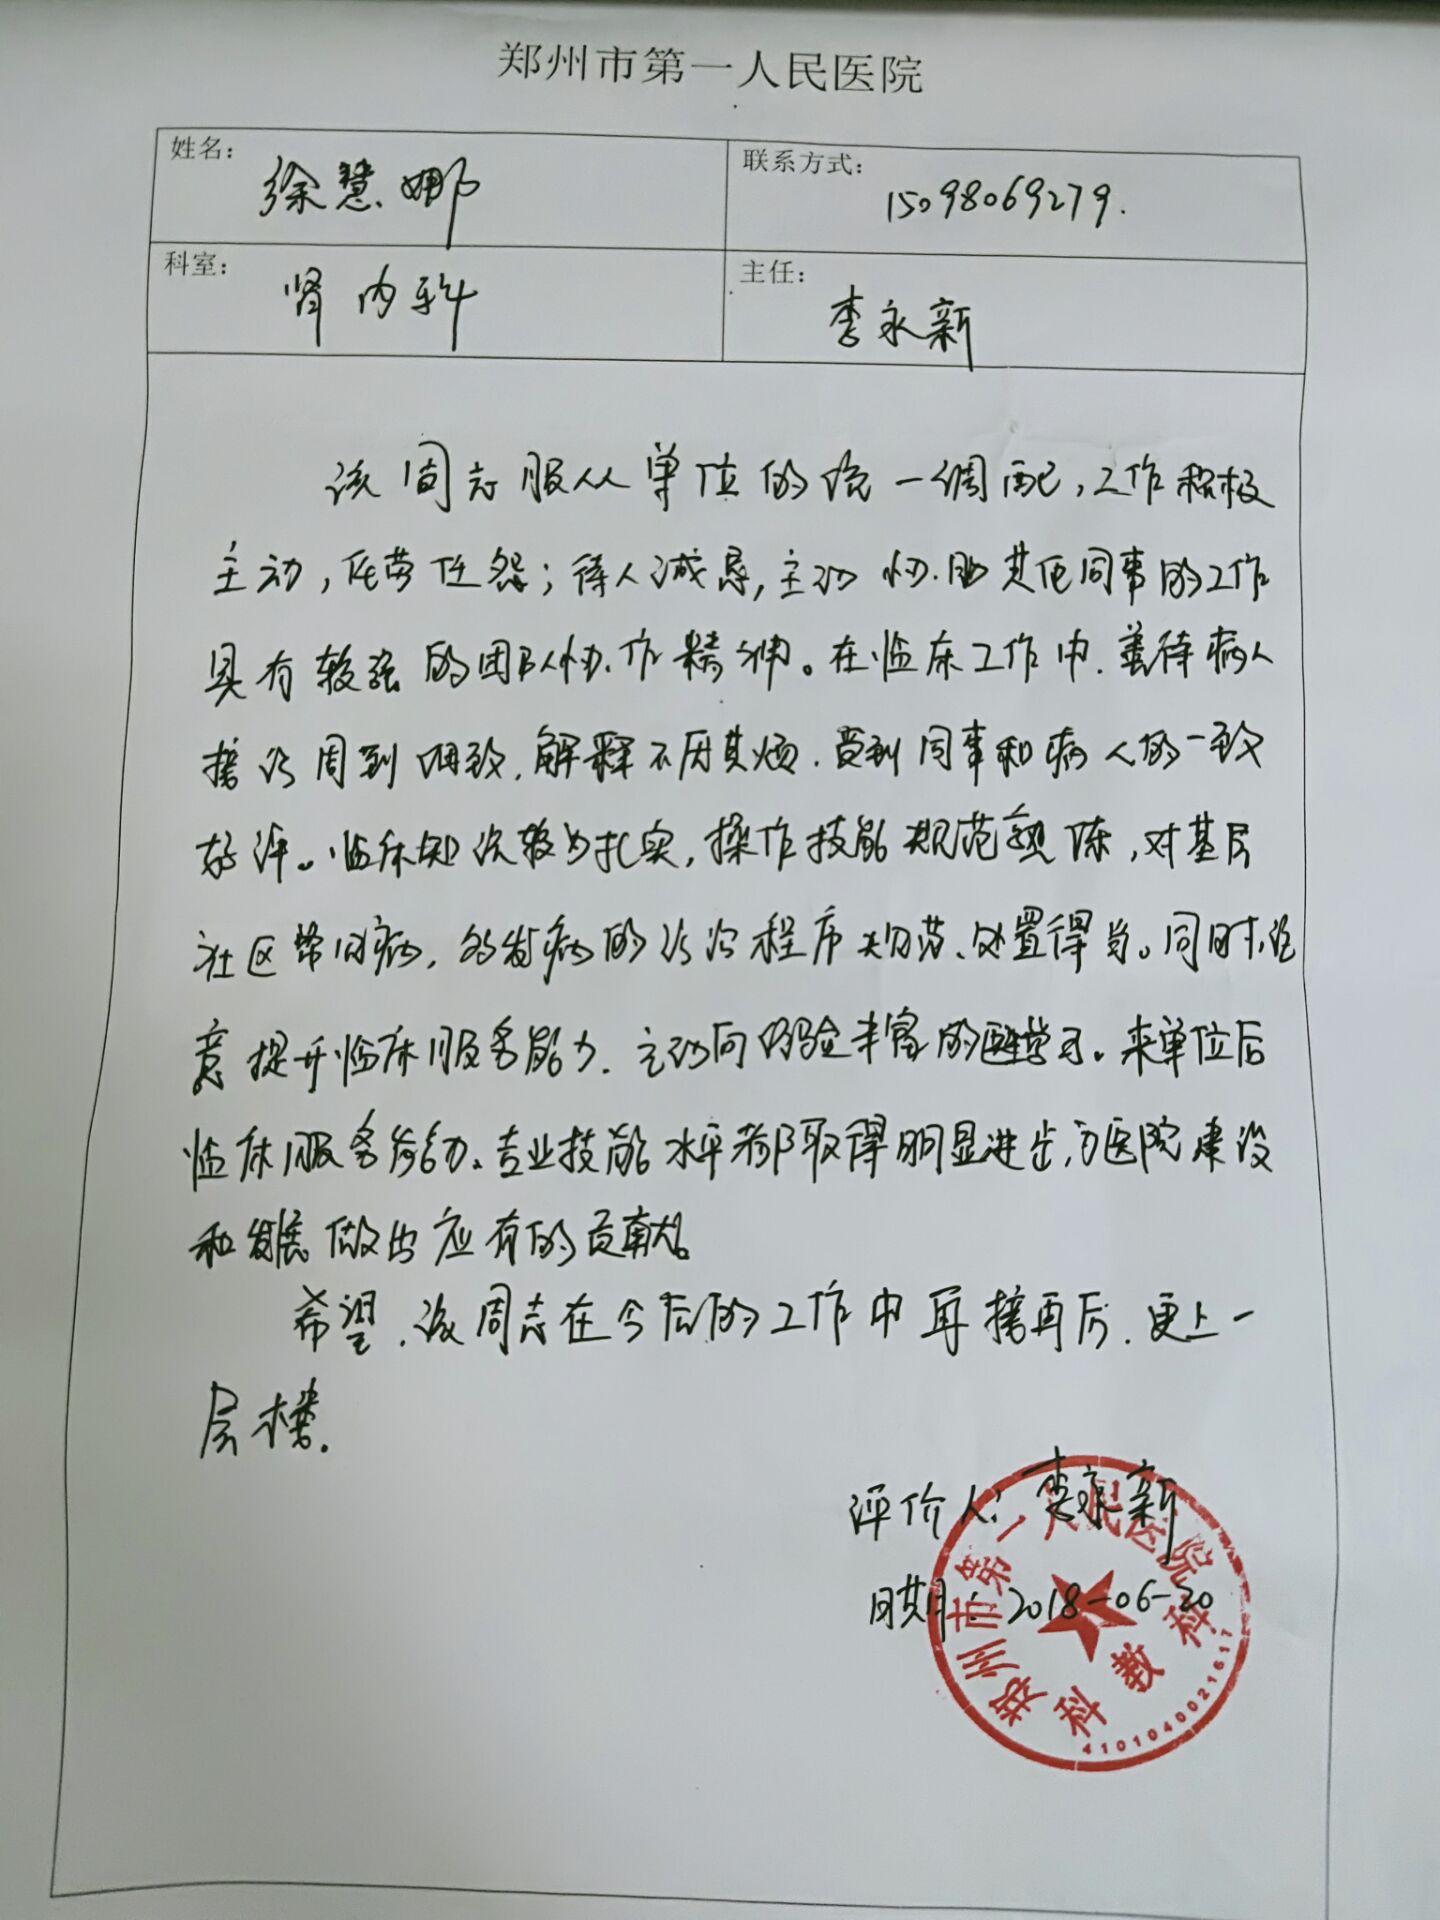 郑州市第一人民医院
姓名： 徐慧娜 联系方式： 15098069279.
科室： 肾内科 主任： 李永新
该同志服从单位的统一调配，工作积极
主动，任劳任怨；待人诚恳，主动协助其他同事的工作
具有较强的团队协作精神。在临床工作中.善待病人
接诊周到细致，解释不厌其烦.受到同事和病人的一致
好评。临床知识较为扎实，操作技能规范熟练，对基层
社区常见病，多发病的诊治程序规范、处置得当。同时注
意提升临床服务能力.主动向经验丰富的医生学习。来单位后
临床服务能力、专业技能水平都取得明显进步，为医院建设
和发展做出应有的贡献。
希望，该同志在今后的工作中再接再厉.更上一
层楼.
评价人：李永新
日期：2018-06-20
郑州市第一人民医院
科教科
4101040021617